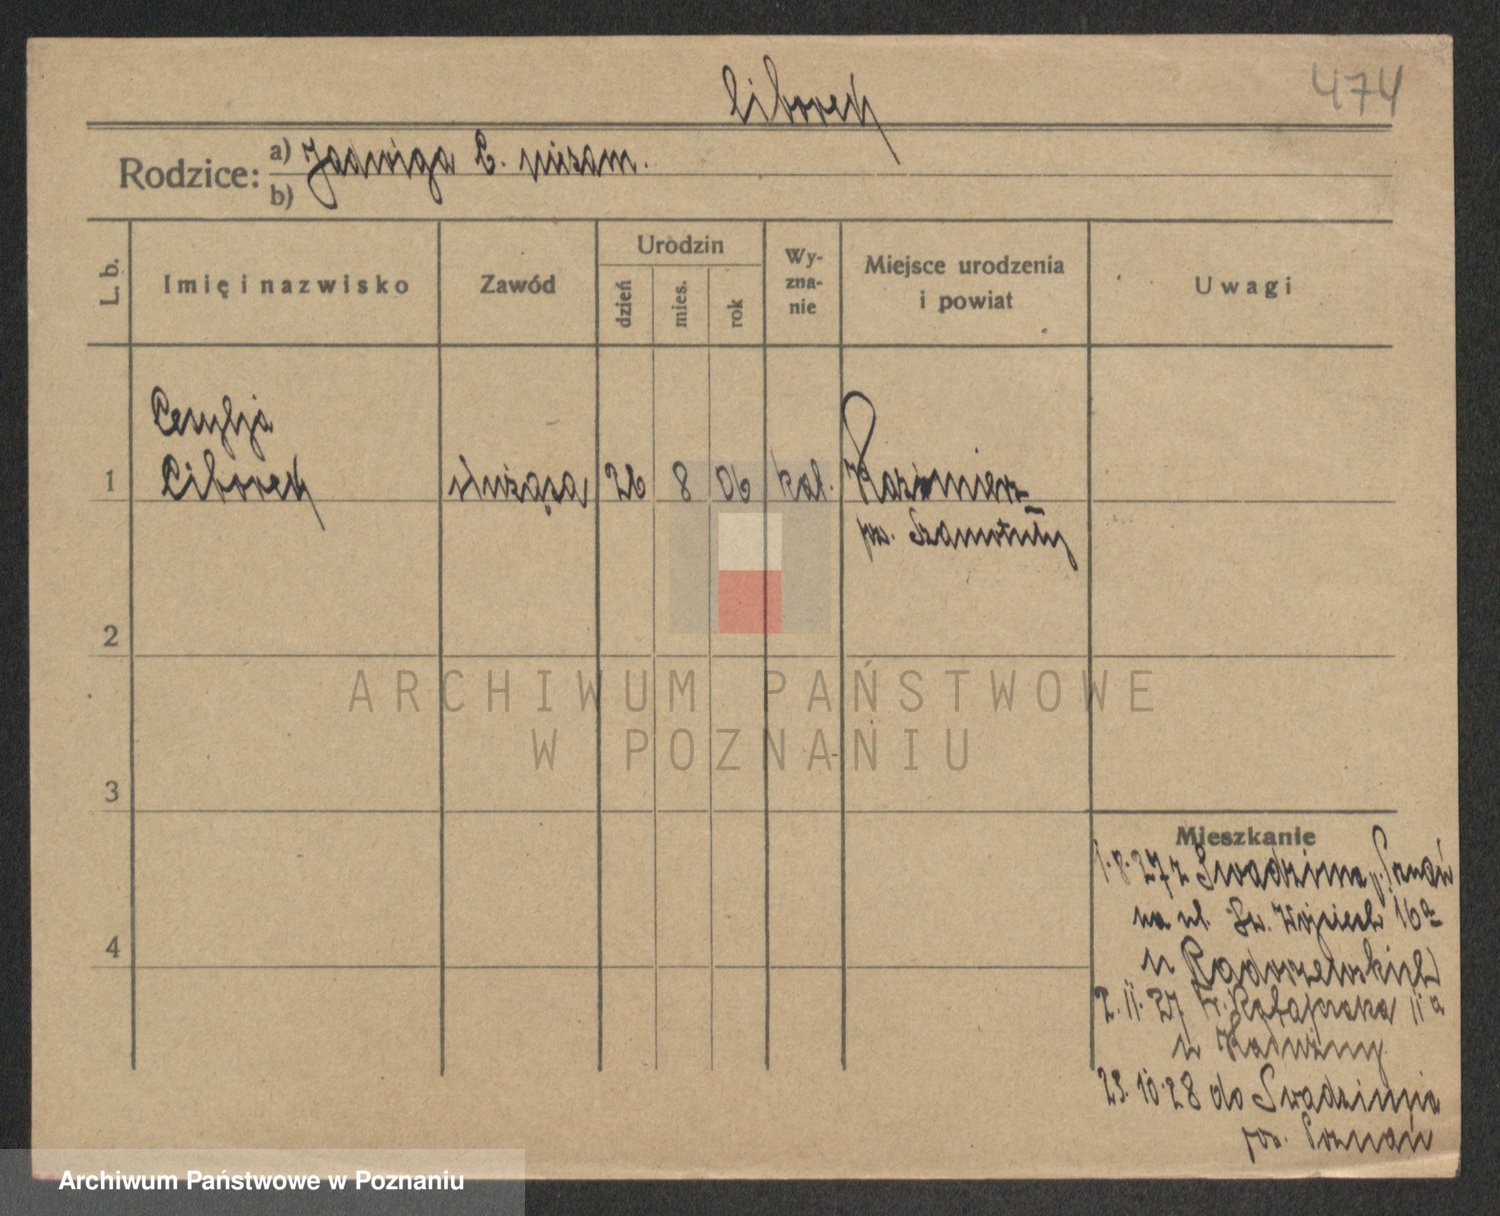 Ciborek
474
Rodzice: a) Jadwiga C. niezam.
b)
L. b.
Imię i nazwisko
Zawód
Urodzin
dzień
mies.
rok
Wy-
zna-
nie
Miejsce urodzenia
i powiat
Uwagi
Cecylja
1 Ciborek służąca 26 8 06 kat. Kazimierz
pow. Szamotuły
2
ARCHIWUM PAŃSTWOWE
W POZNANIU
3
Mieszkanie
1.8.27 z Swadzima, p. Poznań
na ul. Św. Wojciech 16a
4
u Radorzewskich
2.11.27 Kr.
u
23.10.28 do Swadzimia
pow. Poznań
Archiwum Państwowe w Poznaniu